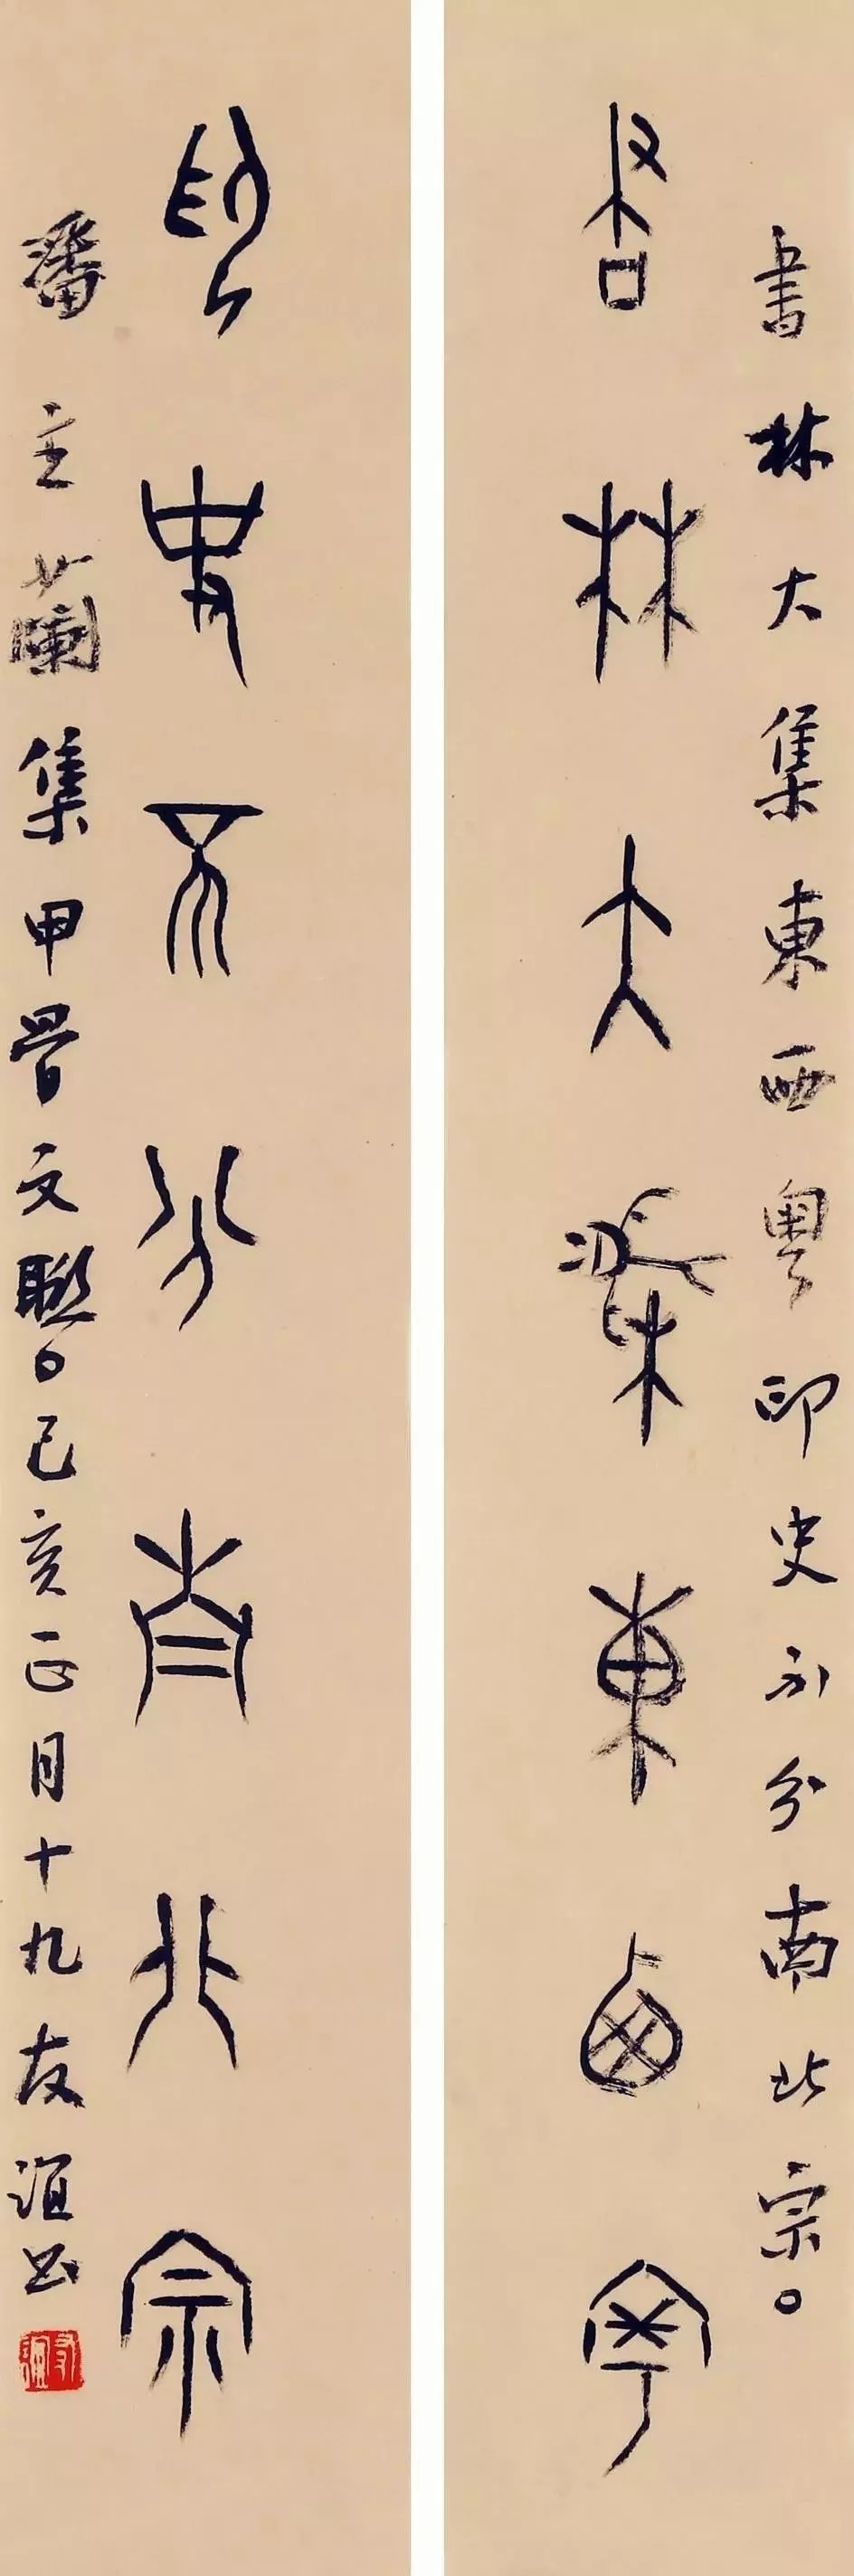 書林大集東西粵印史不分南北宗。
書林大集東西粵
印史不分南北宗
潘主蘭集甲骨文聯。己亥正月十九友誼書
友誼